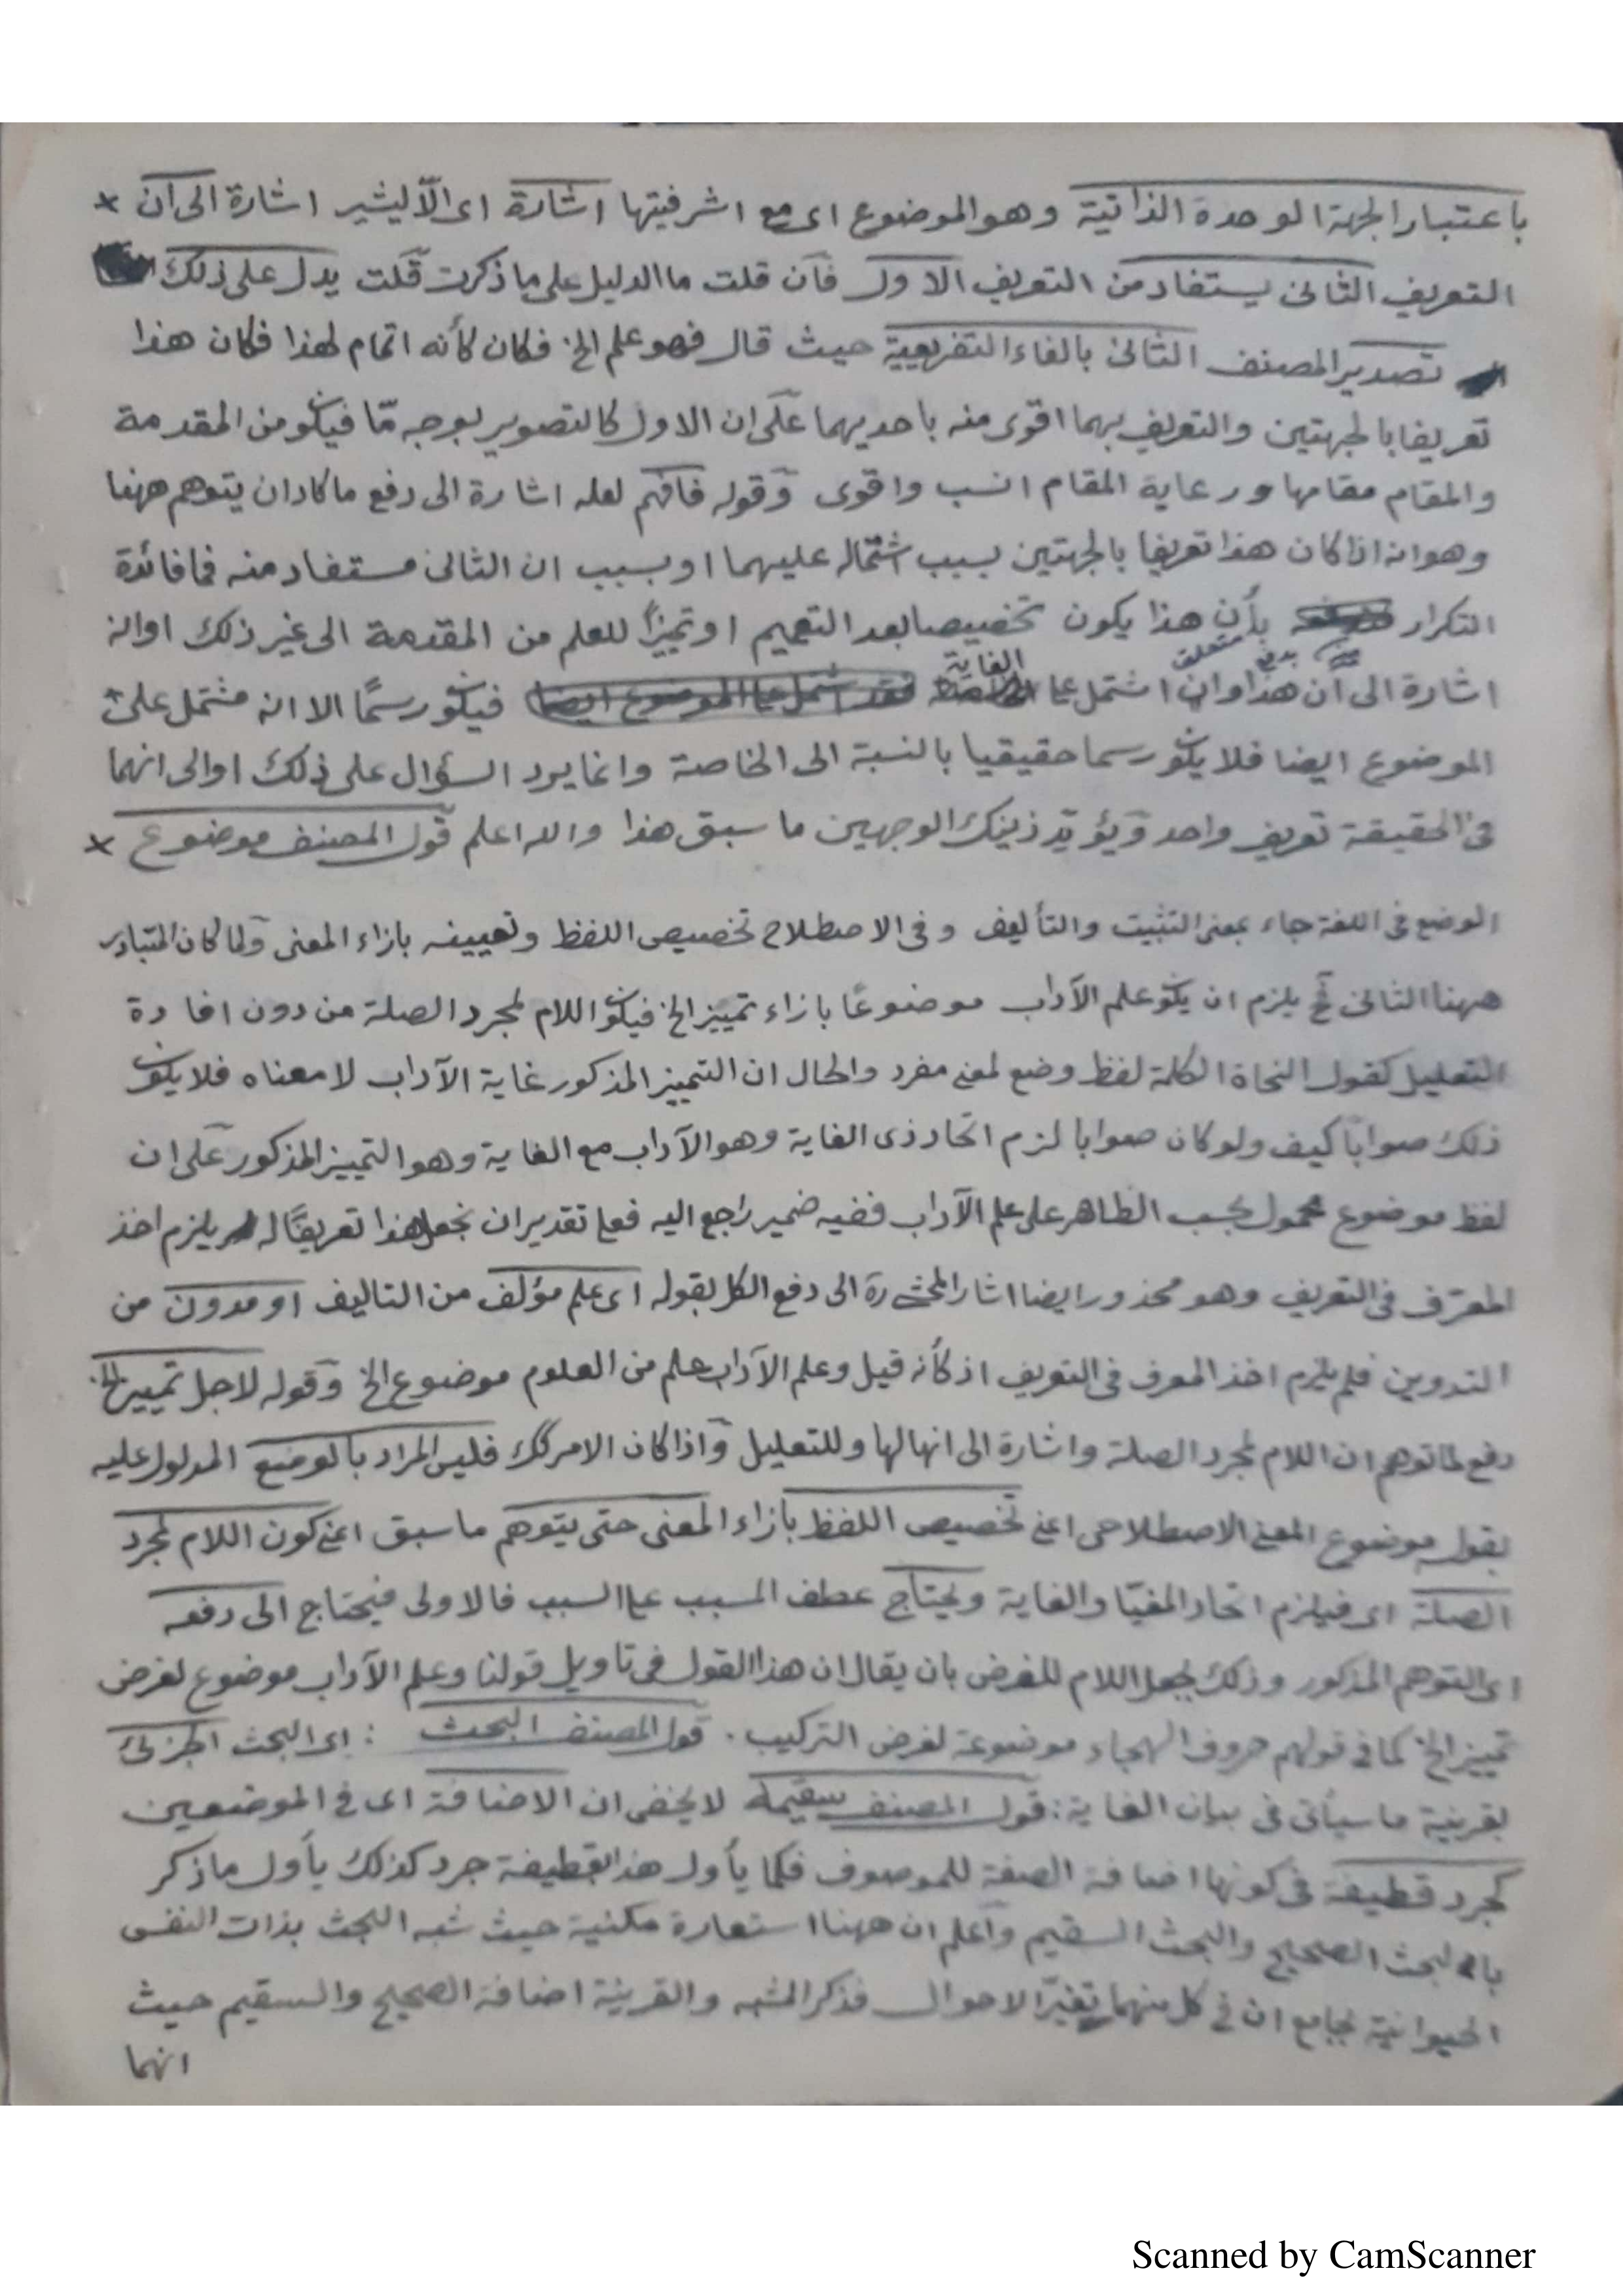 باعتبار الجهة الوحدة الذاتية وهو الموضوع اى مع اشرفيتها اشارة اى الّا ليشير اشارة الى ان ×
التعريف الثانى يستفاد من التعريف الاول فان قلت ما الدليل على ما ذكرت قلت يدل على ذلك
تصدير المصنف الثانى بالفاء التفريعية حيث قال فهو علم الخ فكان كأنه اتمام لهذا فكان هذا
تعريفا بالجهتين والتعريف بهما اقوى منه باحديهما على ان الاول كالتصوير بوجه مّا فيكون من المقدمة
والمقام مقامها ورعاية المقام انسب واقوى وقوله فافهم لعله اشارة الى دفع ما كاد ان يتوهم ههنا
وهو انه اذا كان هذا تعريفا بالجهتين بسبب اشتماله عليهما او بسبب ان الثانى مستفاد منه فما فائدة
التكرار بأن هذا يكون تخصيصا بعد التعميم او تمييزًا للعلم من المقدمة الى غير ذلك او انه
متعلق بدفع
الغاية
اشارة الى ان هذا وان اشتمل على فيكون رسمًا الا انه مشتمل على
الموضوع ايضا فلا يكون رسما حقيقيا بالنسبة الى الخاصة وانما يرد السؤال على ذلك او الى انهما
فى الحقيقة تعريف واحد ويؤيد ذينك الوجهين ما سبق هذا والله اعلم قول المصنف موضوع ×
الوضع فى اللغة جاء بمعنى التثبيت والتأليف وفى الاصطلاح تخصيص اللفظ وتعيينه بازاء المعنى ولما كان المتبادر
ههنا الثانى فح يلزم ان يكون علم الآداب موضوعًا بازاء تمييز الخ فيكون اللام لمجرد الصلة من دون افادة
التعليل كقول النحاة الكلمة لفظ وضع لمعنى مفرد والحال ان التمييز المذكور غاية الآداب لا معناه فلا يكون
ذلك صوابًا كيف ولو كان صوابا لزم اتحاد ذى الغاية وهو الآداب مع الغاية وهو التمييز المذكور على ان
لفظ موضوع محمول بحسب الظاهر على علم الآداب ففيه ضمير راجع اليه فعلى تقدير ان نجعل هذا تعريفًا له يلزم اخذ
المعرّف فى التعريف وهو محذور ايضا اشار المحشى ره الى دفع الكل بقوله اى علم مؤلف من التاليف او مدون من
التدوين فلم يلزم اخذ المعرف فى التعريف اذ كأنه قيل وعلم الآداب علم من العلوم موضوع الخ وقوله لاجل تمييز الخ
دفع لما توهم ان اللام لمجرد الصلة واشارة الى انها لها وللتعليل واذا كان الامر كك فليس المراد بالوضع المدلول عليه
بقوله موضوع المعنى الاصطلاحى اعنى تخصيص اللفظ بازاء المعنى حتى يتوهم ما سبق اعنى كون اللام لمجرد
الصلة اى فيلزم اتحاد المغيّا والغاية ويحتاج عطف المسبب على السبب فالاولى فيحتاج الى دفعه
اى التوهم المذكور وذلك بجعل اللام للغرض بان يقال ان هذا القول فى تاويل قولنا وعلم الآداب موضوع لغرض
تمييز الخ كما فى قولهم حروف الهجاء موضوعة لغرض التركيب . قول المصنف البحث : اى البحث الجزئى
بقرينة ما سيأتى فى بيان الغاية : قول المصنف سقيمه لا يخفى ان الاضافة اى فى الموضعين
كجرد قطيفة فى كونها اضافة الصفة للموصوف فكما يأول هذا بقطيفة جرد كذلك يأول ما ذكر
بالبحث الصحيح والبحث السقيم واعلم ان ههنا استعارة مكنية حيث شبه البحث بذات النفس
الحيوانية بجامع ان فى كل منهما تغيّر الاحوال فذكر المشبه والقرينة اضافة الصحيح والسقيم حيث
انهما